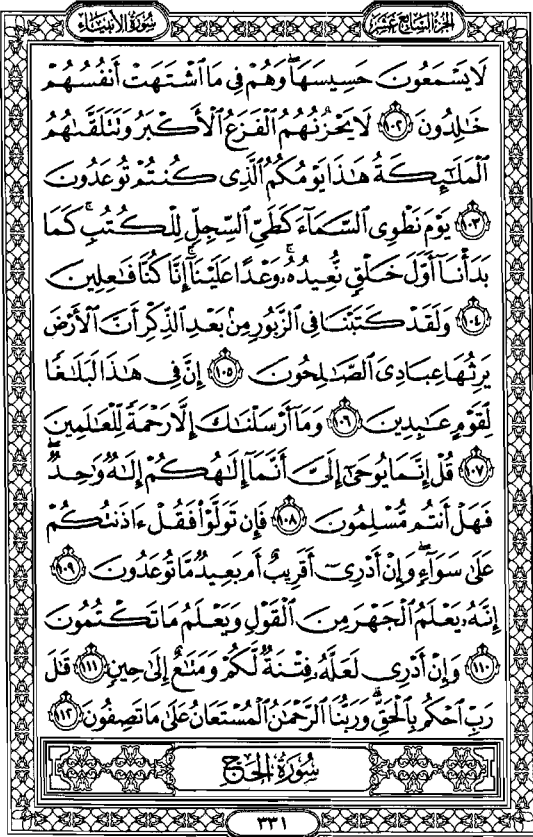 سُورَةُ الأَنبيَاء الجُزءُ السَّابع عَشَر
لَا يَسْمَعُونَ حَسِيسَهَا ۖ وَهُمْ فِى مَا ٱشْتَهَتْ أَنفُسُهُمْ
خَٰلِدُونَ ١٠٢ لَا يَحْزُنُهُمُ ٱلْفَزَعُ ٱلْأَكْبَرُ وَتَتَلَقَّىٰهُمُ
ٱلْمَلَٰٓئِكَةُ هَٰذَا يَوْمُكُمُ ٱلَّذِى كُنتُمْ تُوعَدُونَ
١٠٣ يَوْمَ نَطْوِى ٱلسَّمَآءَ كَطَىِّ ٱلسِّجِلِّ لِلْكُتُبِ ۚ كَمَا
بَدَأْنَآ أَوَّلَ خَلْقٍ نُّعِيدُهُۥ ۚ وَعْدًا عَلَيْنَآ ۚ إِنَّا كُنَّا فَٰعِلِينَ
١٠٤ وَلَقَدْ كَتَبْنَا فِى ٱلزَّبُورِ مِنۢ بَعْدِ ٱلذِّكْرِ أَنَّ ٱلْأَرْضَ
يَرِثُهَا عِبَادِىَ ٱلصَّٰلِحُونَ ١٠٥ إِنَّ فِى هَٰذَا لَبَلَٰغًا
لِّقَوْمٍ عَٰبِدِينَ ١٠٦ وَمَآ أَرْسَلْنَٰكَ إِلَّا رَحْمَةً لِّلْعَٰلَمِينَ
١٠٧ قُلْ إِنَّمَا يُوحَىٰٓ إِلَىَّ أَنَّمَآ إِلَٰهُكُمْ إِلَٰهٌ وَٰحِدٌ ۖ
فَهَلْ أَنتُم مُّسْلِمُونَ ١٠٨ فَإِن تَوَلَّوْا۟ فَقُلْ ءَاذَنتُكُمْ
عَلَىٰ سَوَآءٍ ۖ وَإِنْ أَدْرِىٓ أَقَرِيبٌ أَم بَعِيدٌ مَّا تُوعَدُونَ ١٠٩
إِنَّهُۥ يَعْلَمُ ٱلْجَهْرَ مِنَ ٱلْقَوْلِ وَيَعْلَمُ مَا تَكْتُمُونَ
١١٠ وَإِنْ أَدْرِى لَعَلَّهُۥ فِتْنَةٌ لَّكُمْ وَمَتَٰعٌ إِلَىٰ حِينٍ ١١١ قَٰلَ
رَبِّ ٱحْكُم بِٱلْحَقِّ ۗ وَرَبُّنَا ٱلرَّحْمَٰنُ ٱلْمُسْتَعَانُ عَلَىٰ مَا تَصِفُونَ ١١٢
سُورَةُ الحَجّ
٣٣١